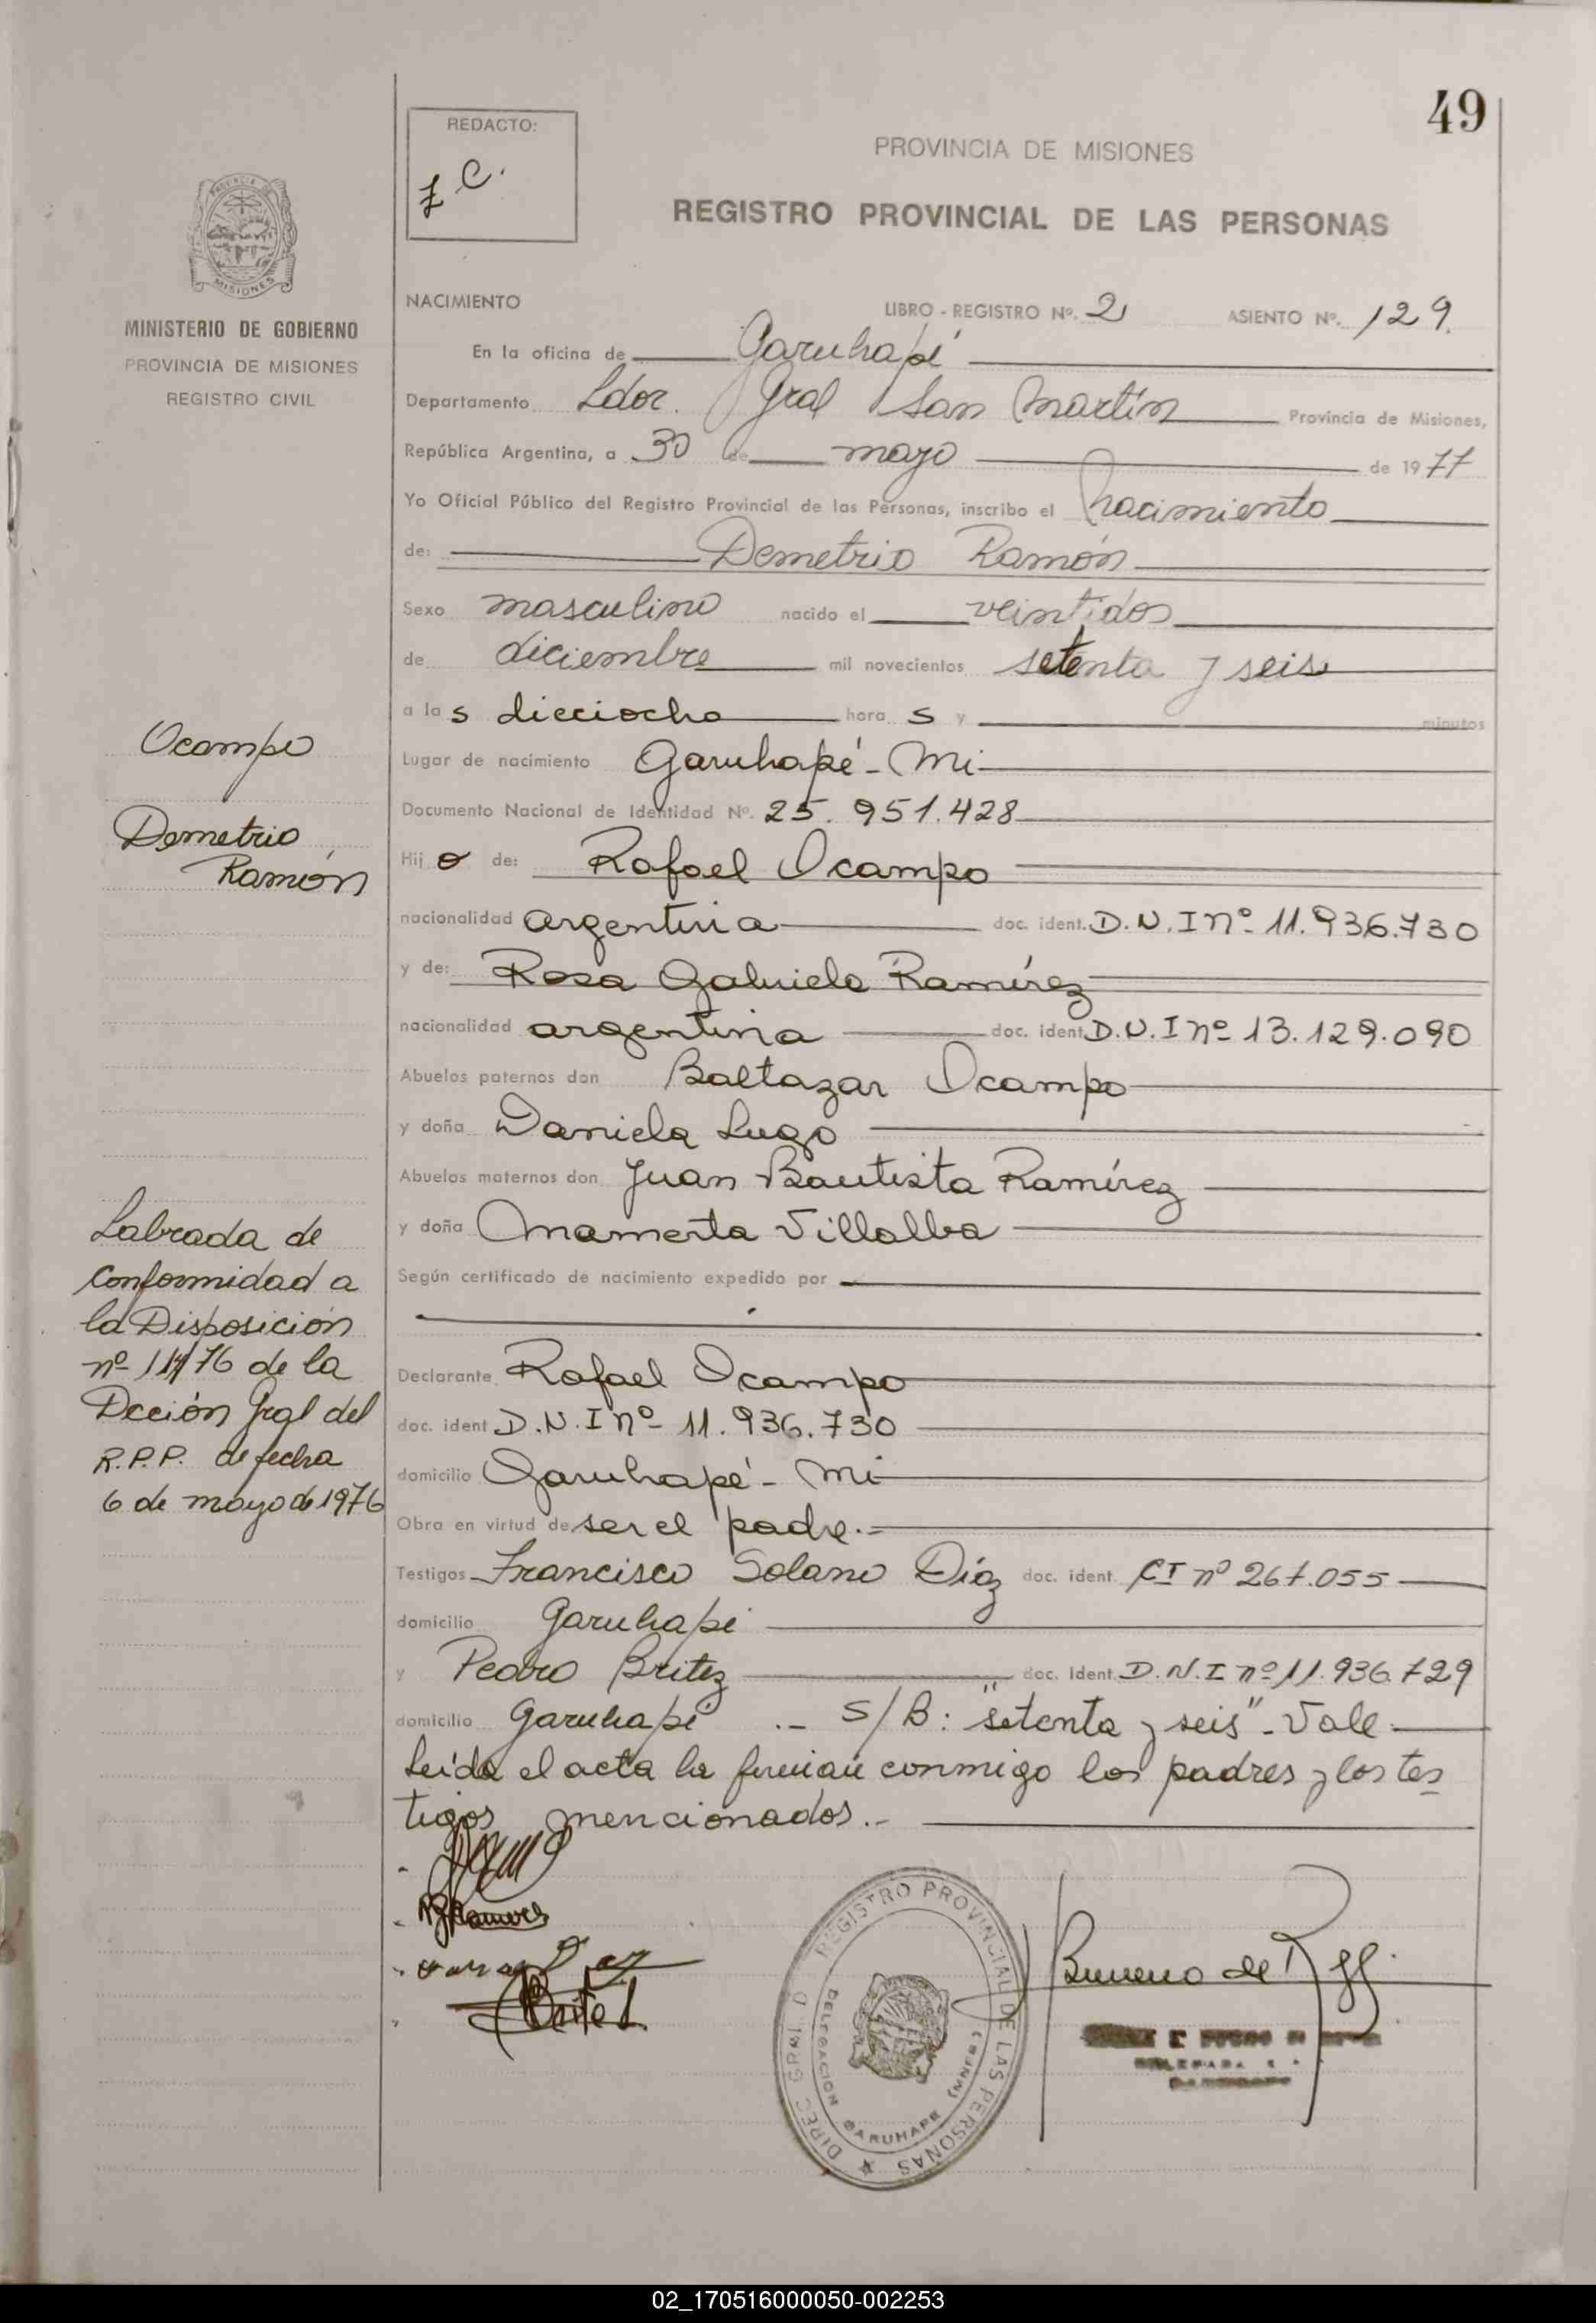 49
REDACTO:
Z C.
PROVINCIA DE MISIONES
REGISTRO PROVINCIAL DE LAS PERSONAS
MISIONES
MINISTERIO DE GOBIERNO
PROVINCIA DE MISIONES
REGISTRO CIVIL
NACIMIENTO LIBRO - REGISTRO Nº. 2 ASIENTO Nº. 129.
En la oficina de Garuhapé
Departamento Ldor. Gral San Martín Provincia de Misiones,
República Argentina, a 30 de mayo de 1977
Yo Oficial Público del Registro Provincial de las Personas, inscribo el nacimiento
de: Demetrio Ramón
Sexo masculino nacido el veintidos
de diciembre mil novecientos setenta y seis
a las dieciocho horas y minutos
Lugar de nacimiento Garuhapé - Mi
Documento Nacional de Identidad Nº. 25.951.428
Hijo de: Rafael Ocampo
nacionalidad argentina doc. ident. D.N.I nº 11.936.730
y de: Rosa Gabriela Ramírez
nacionalidad argentina doc. ident. D.N.I nº 13.129.090
Abuelos paternos don Baltazar Ocampo
y doña Daniela Lugo
Abuelos maternos don Juan Bautista Ramírez
y doña Mamerta Villalba
Según certificado de nacimiento expedido por
Declarante Rafael Ocampo
doc. ident D.N.I nº 11.936.730
domicilio Garuhapé - Mi
Obra en virtud de ser el padre.=
Testigos Francisco Solano Díaz doc. ident. CI nº 267.055
domicilio Garuhapé
y Pedro Britez doc. Ident. D.N.I nº 11.936.729
domicilio Garuhapé .- S/B: "setenta y seis" - Vale.
Leída el acta la firman conmigo los padres y los tes
tigos mencionados.-
Ocampo
Demetrio
Ramón
Labrada de
conformidad a
la Disposición
nº 114/76 de la
Dcción Gral del
R.P.P. de fecha
6 de mayo de 1976
Britez
REGISTRO PROVINCIAL DE LAS PERSONAS
DIREC. GRAL. D
DELEGACION GARUHAPE (MNES)
Bueno de
02_170516000050-002253